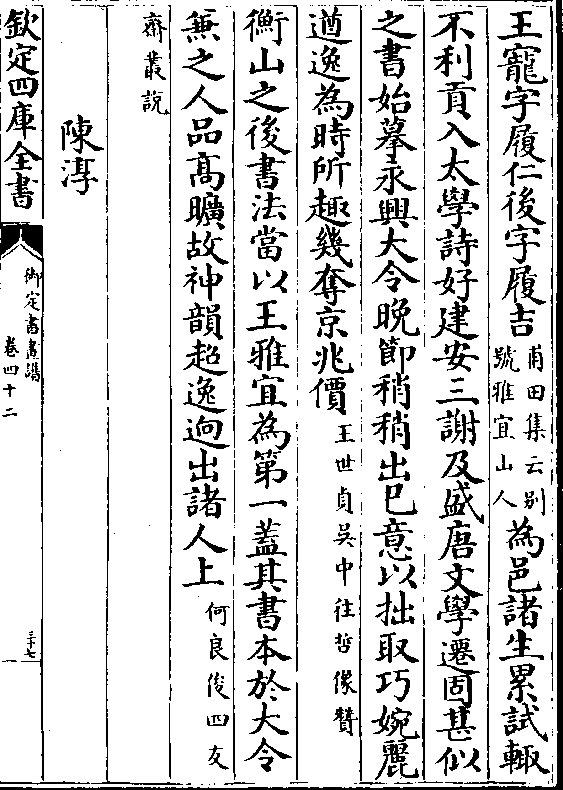 王寵字履仁後字履吉甫田集云别號雅宜山人為邑諸生累試輙
不利貢入太學詩好建安三謝及盛唐文學遷固甚似
之書始摹永興大令晚節稍稍出已意以拙取巧婉麗
遒逸為時所趣幾奪京兆價王世貞吳中往哲像贊
衡山之後書法當以王雅宜為第一蓋其書本於大令
兼之人品髙曠故神韻超逸逈出諸人上何良俊四友
齋叢説
陳淳
欽定四庫全書
御定書畫譜
卷四十二
三十七